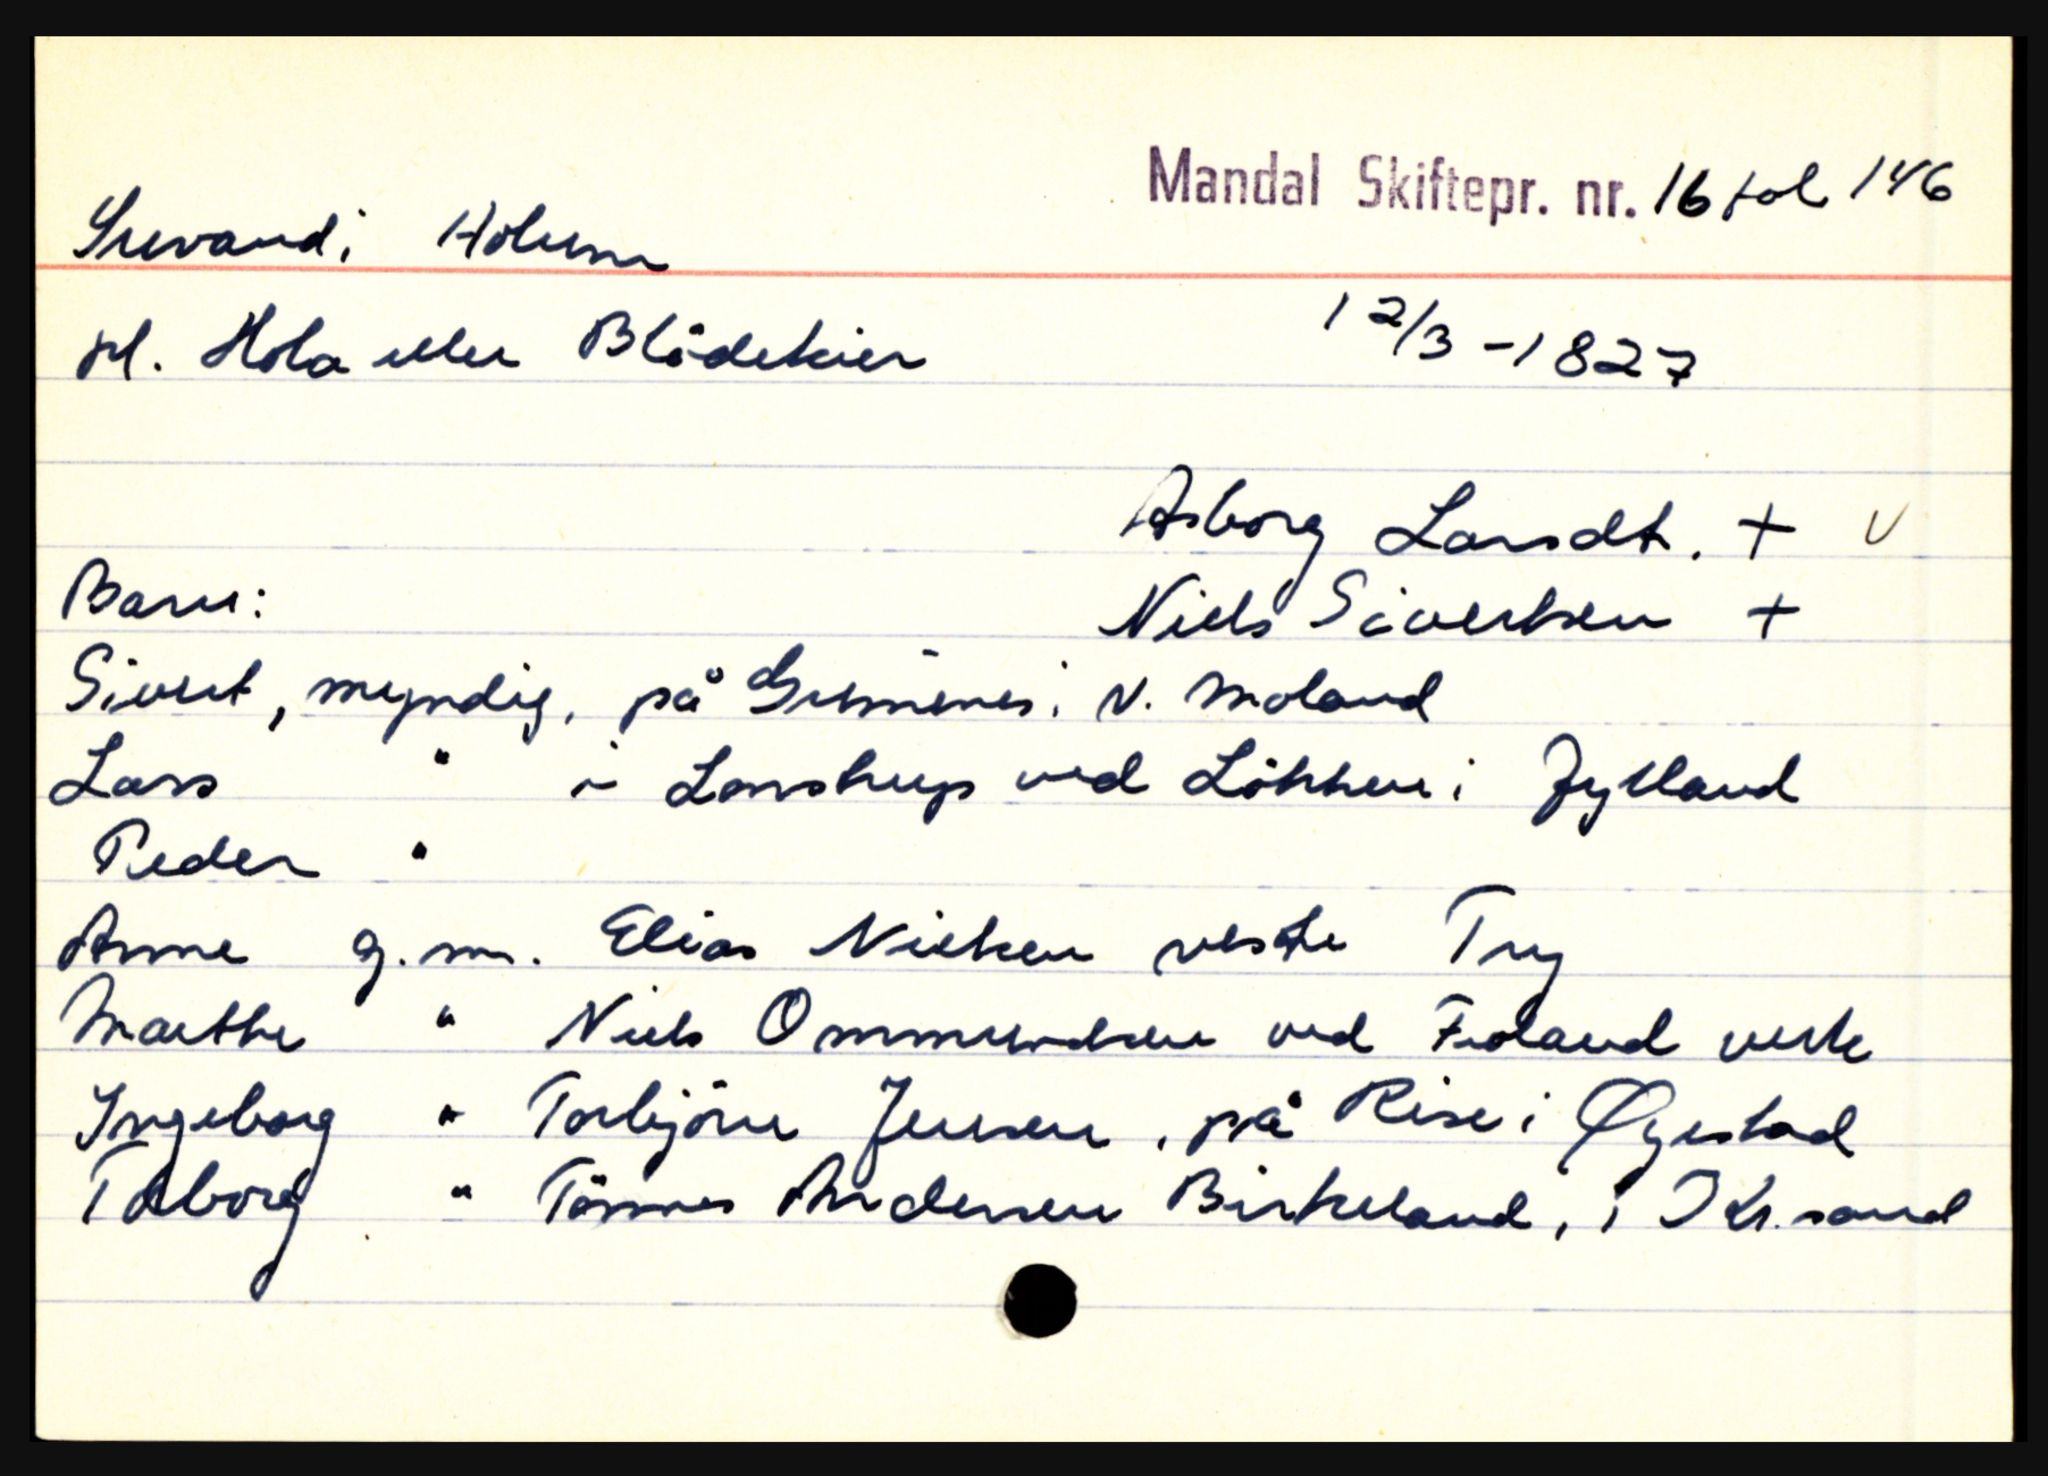 Mandal Skiftepr. nr. 16 fol 146
i Holum
pl. Hola eller Blödekier
12/3 - 1827
Asborg Larsdt. + v
Barn:
Niels Sivertsen +
Sivert, myndig, på i V. Moland
Lars " i Lonstrup ved Lökken i Jylland
Peder "
Anne g.m. Elias Nielsen vestre Try
Marthe " Niels Ommundsen ved Froland verk
Ingeborg " Torbjörn Jensen, på Rise i Øyestad
Taborg " Tönnes Andersen Birkeland, i Kr.sand